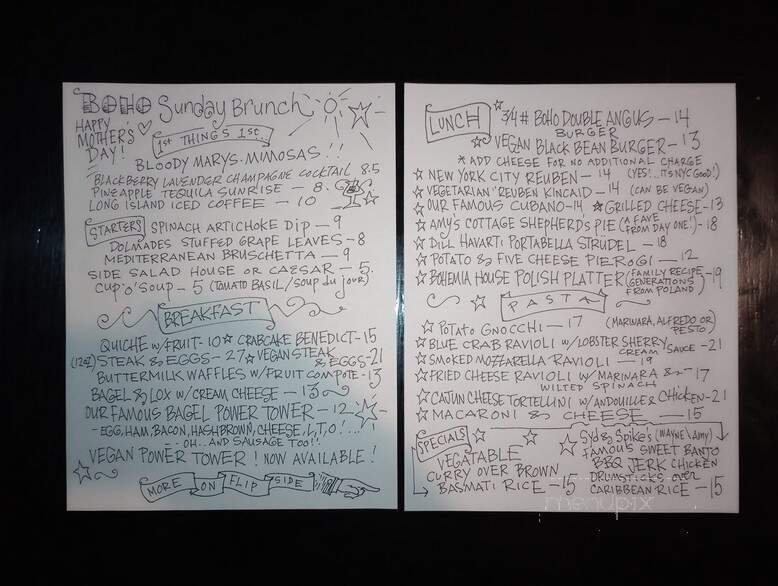 BOHO Sunday Brunch
HAPPY MOTHER'S DAY!
1st THINGS 1st...
BLOODY MARYS. MIMOSAS!!
BLACKBERRY LAVENDER CHAMPAGNE COCKTAIL 8.5
PINEAPPLE TEQUILA SUNRISE - 8.
LONG ISLAND ICED COFFEE - 10
STARTERS SPINACH ARTICHOKE DIP - 9
DOLMADES STUFFED GRAPE LEAVES - 8
MEDITERRANEAN BRUSCHETTA - 9
SIDE SALAD HOUSE OR CAESAR - 5.
CUP'O'SOUP - 5 (TOMATO BASIL/SOUP du jour)
BREAKFAST
QUICHE w/FRUIT - 10 CRABCAKE BENEDICT - 15
(12oz) STEAK & EGGS - 27 VEGAN STEAK & EGGS - 21
BUTTERMILK WAFFLES W/ FRUIT COMPOTE - 13
BAGEL & LOX W/ CREAM CHEESE - 13
OUR FAMOUS BAGEL POWER TOWER - 12
- EGG, HAM, BACON, HASHBROWN, CHEESE, L, T, O!...
- OH.. AND SAUSAGE TOO!!
VEGAN POWER TOWER! NOW AVAILABLE!
MORE ON FLIP SIDE
LUNCH 3/4 # BOHO DOUBLE ANGUS BURGER - 14
VEGAN BLACK BEAN BURGER - 13
* ADD CHEESE FOR NO ADDITIONAL CHARGE
NEW YORK CITY REUBEN - 14 (YES!.. IT'S NYC GOOD!)
VEGETARIAN 'REUBEN KINCAID - 14 (CAN BE VEGAN)
OUR FAMOUS CUBANO - 14 GRILLED CHEESE - 13
AMY'S COTTAGE SHEPHERD'S PIE (A FAVE FROM DAY ONE!) - 18
DILL HAVARTI PORTABELLA STRUDEL - 18
POTATO & FIVE CHEESE PIEROGI - 12
BOHEMIA HOUSE POLISH PLATTER (FAMILY RECIPE GENERATIONS FROM POLAND) - 19
PASTA
POTATO GNOCCHI - 17 (MARINARA, ALFREDO OR PESTO)
BLUE CRAB RAVIOLI W/ LOBSTER SHERRY CREAM SAUCE - 21
SMOKED MOZZARELLA RAVIOLI - 19
FRIED CHEESE RAVIOLI W/ MARINARA & WILTED SPINACH - 17
CAJUN CHEESE TORTELLINI W/ ANDOUILLE & CHICKEN - 21
MACARONI & CHEESE - 15
SPECIALS
VEGATABLE
CURRY OVER BROWN
BASMATI RICE - 15
Syd & Spike's (WAYNE & AMY)
FAMOUS SWEET BANTO
BBQ JERK CHICKEN
DRUMSTICKS over
CARIBBEAN RICE - 15
menupix